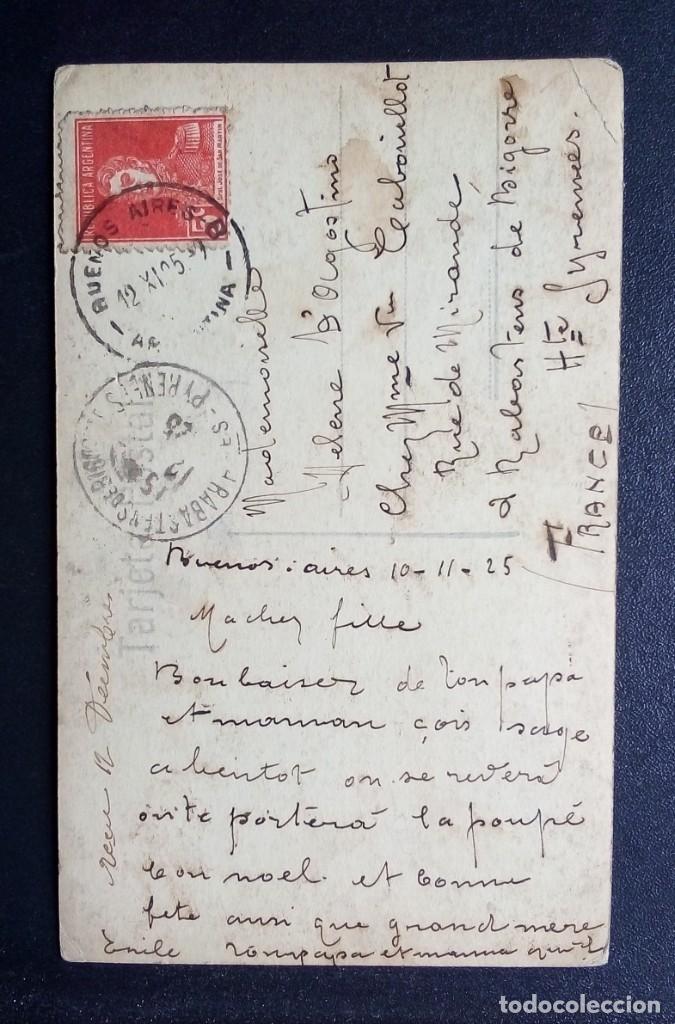 REPUBLICA ARGENTINA
GRAL. JOSE DE SAN MARTIN
5c
BUENOS AIRES B
12 XI 25
ARGENTINA
RABASTENS DE BIGORRE
Tarjeta Postal
Mademoiselle
Helene D'Agostino
Chez Mme Vve
Rue de Mirande
a Rabastens de Bigorre
Hte Pyrenees.
FRANCE
Buenos-aires 10-11-25
Macher fille
Bonbaiser de tonpapa
et maman çois sage
a bientot on se reverà
on te porterà la poupé
bon noel. et bonne
fete ausi que grand mere
Emile tonpapa et mama
recu 12 Décembre
todocoleccion